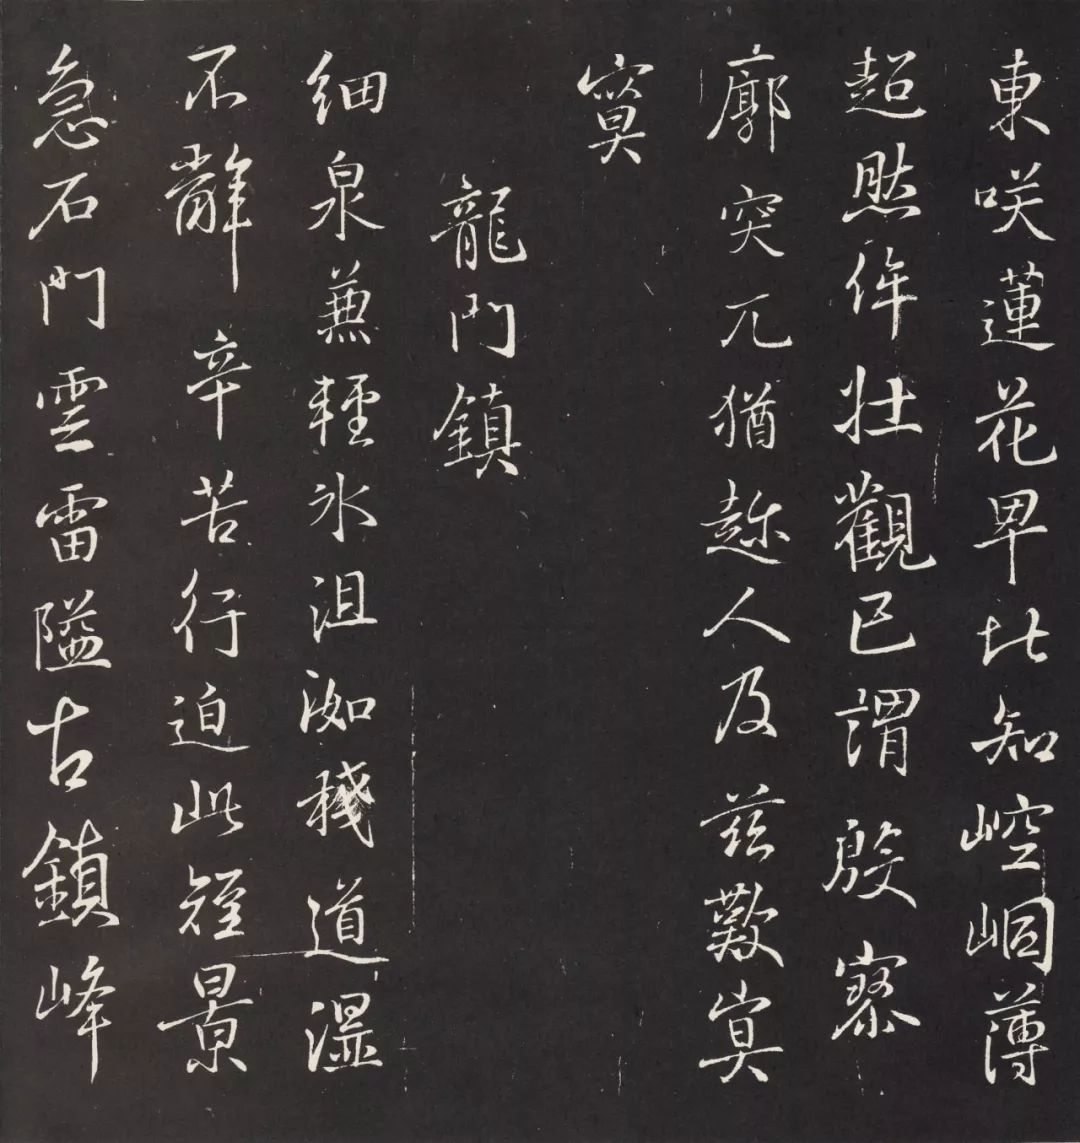 東咲蓮花卑北知崆峒薄
超然侔壯觀已謂殷寥
廓突兀猶趂人及茲歎冥
寞
龍門鎮
細泉兼輕氷沮洳棧道湿
不辭辛苦行迫此短景
急石門雲雷隘古鎮峰